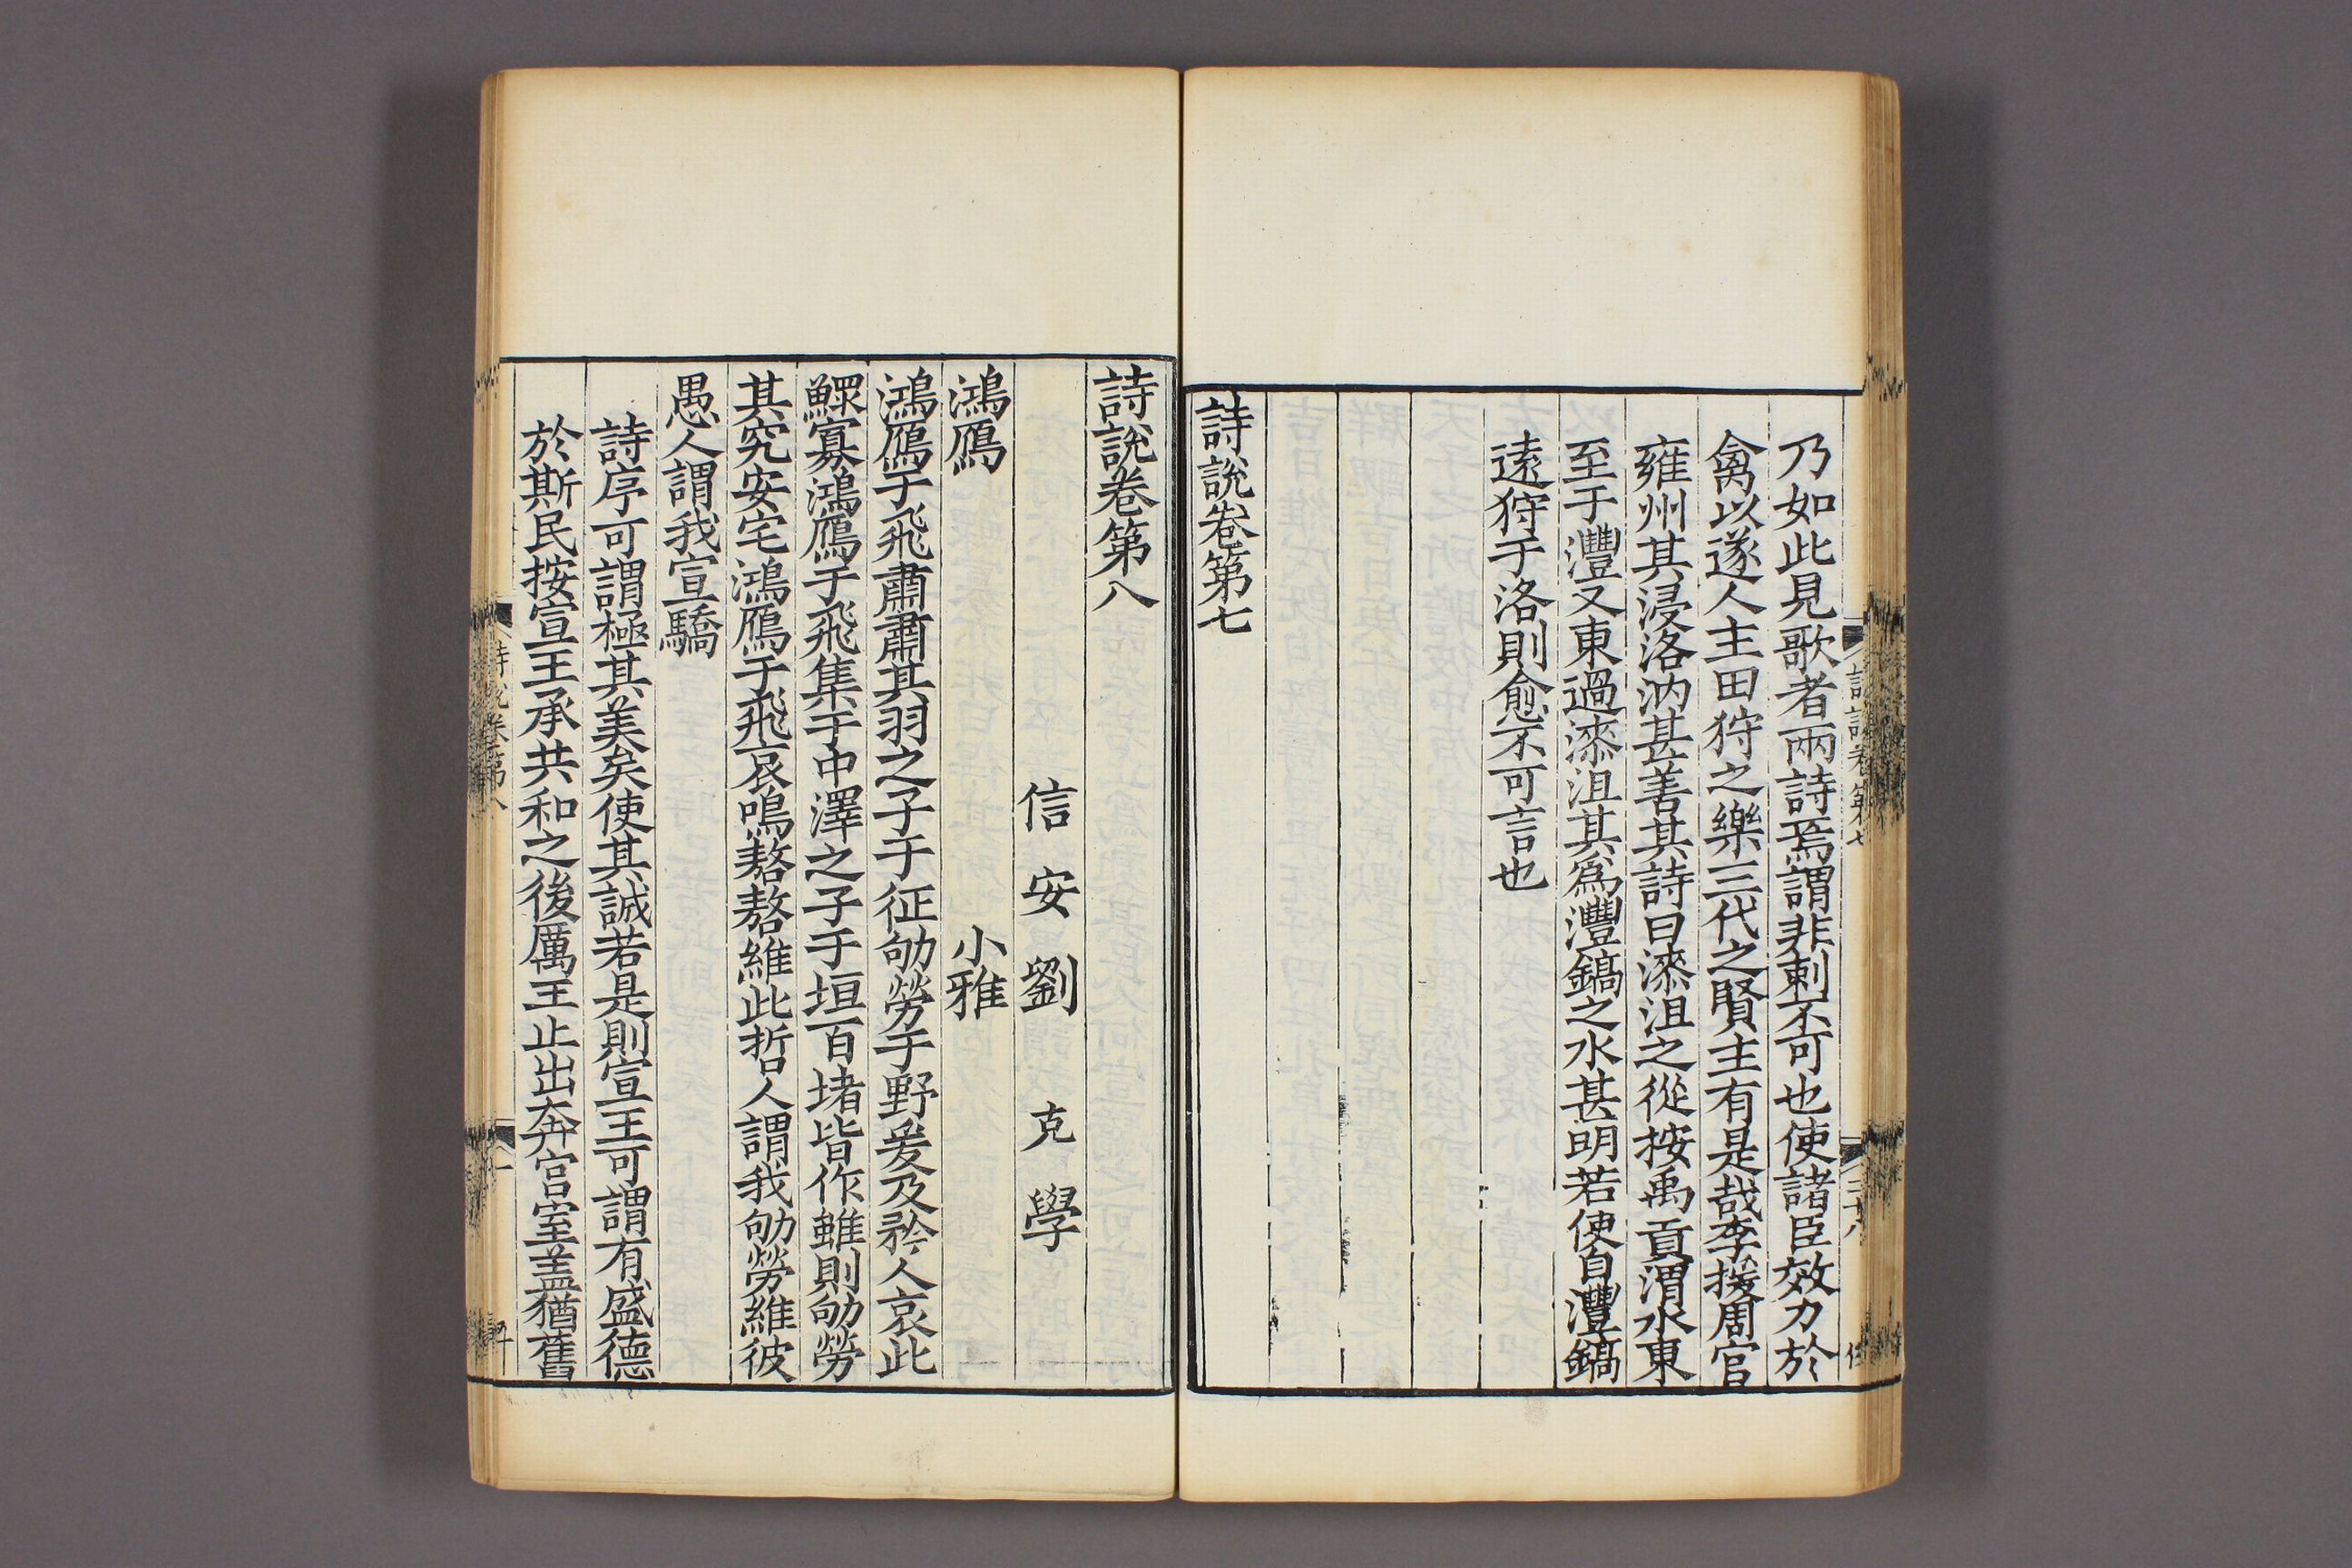 乃如此見歌者兩詩焉謂非刺不可也使諸臣效力於
禽以遂人主田狩之樂三代之賢主有是哉李援周官
雍州其浸洛汭甚善其詩曰漆沮之從按禹貢渭水東
至于灃又東過漆沮其爲灃鎬之水甚明若使自灃鎬
逺狩于洛則愈不可言也
詩說卷第七
詩說卷第八
信安劉克學
鴻鴈 小雅
鴻鴈于飛肅肅其羽之子于征劬勞于野爰及矜人哀此
鰥寡鴻鴈于飛集于中澤之子于垣百堵皆作雖則劬勞
其究安宅鴻鴈于飛哀鳴嗸嗸維此哲人謂我劬勞維彼
愚人謂我宣驕
詩序可謂極其美矣使其誠若是則宣王可謂有盛德
於斯民按宣王承共和之後厲王止出奔宮室盖猶舊